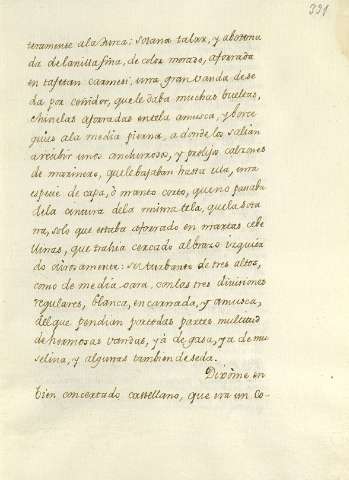 331
teramente ala turca: sotana talar, y abotona
da delanilla fina, de color morado, aforrada
en tafetan carmesi, una gran vanda de se
da por ceñidor, que le daba muchas bueltas,
chinelas aforradas en tela amusca, y borce
guies ala media pierna, a donde los salian
a recibir unos anchurosos, y prolijos calzones
de marinero, que le bajaban hasta ella, una
especie de capa, ò manto corto, que no pasaba
de la cintura de la misma tela, que la sota
na, solo que estaba aforrado en martas cebe
llinas, que trahia cercado al brazo izquier
do airosamente: su turbante de tres altos,
como de media vara, con las tres divisiones
regulares, blanca, encarnada, y amusca,
del que pendian por todas partes multitud
de hermosas vandas, yá de gasa, ya de mu
selina, y algunas tambien de seda.
Dixôme en
bien concertado castellano, que era un Co-